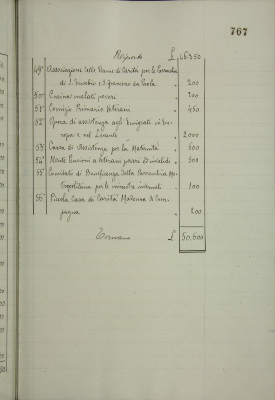 767
Riporto £ 46.350
49° Associazione delle Dame di Carità per le Parrocchie
di S. Eusebio e S. Francesco da Paola " 200
50° Cucina malati poveri " 200
51° Comizio Primario Veterani " 450
52° Opera di assistenza agli Emigrati in Eu-
ropa e nel Levante " 2000
53° Cassa di Assistenza per la Maternità " 600
54° Monte Pensioni a veterani poveri ed invalidi " 500
55° Comitato di Beneficenza della Parrocchia Me-
tropolitana per le minestre invernali " 100
56° Piccola Casa di Carità Madonna di Cam-
pagna " 200
Tornano £ 50.600